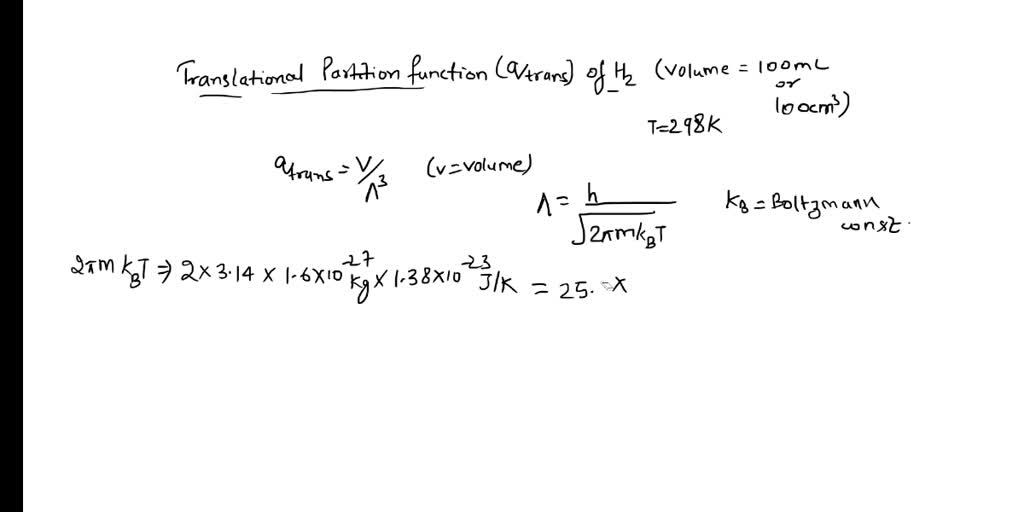 Translational Partition function (qtrans) of H2 (volume = 100mL
or
100cm³)
T=298K
qtrans = V/Λ³ (v=volume)
Λ = h/√2πmkBT
KB = Boltzmann
const.
2πm kBT ⇒ 2 × 3.14 × 1.6×10⁻²⁷ kg × 1.38×10⁻²³ J/K = 25. x